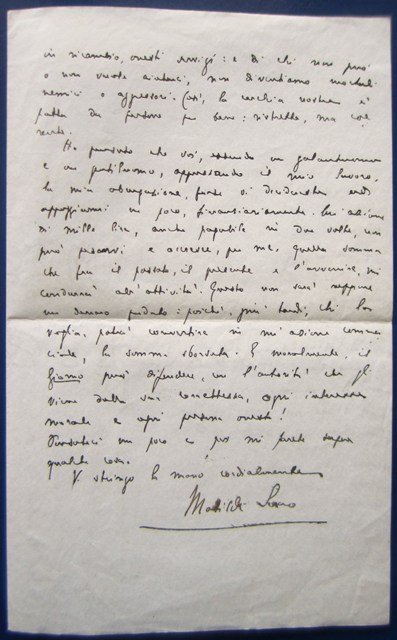 in ricambio, onesti servigi: e di chi non può
o non vuole aiutarci, non diventiamo mortali
nemici o aggressori. Così, la cerchia nostra è
fatta da persone per bene: ristretta, ma
Ho pensato che voi, essendo un galantuomo
e un gentiluomo, apprezzando il mio lavoro,
la mia abnegazione, forse vi
appoggiarmi un poco, finanziariamente. Un'azione
di mille lire, anche pagabile in due volte, non
può pesarvi e accresce, per me, quella somma
che fra il passato, il presente e l'avvenire, mi
condurrà all'attività. Questo non sarà neppure
un danaro perduto: poiché, più tardi, chi lo
voglia, potrà convertire in un'azione commer
ciale, la somma sborsata. E moralmente, il
Giorno può difendere, con l'autorità che gli
viene dalla sua correttezza, ogni interesse
morale e ogni persona onesta!
Pensateci un poco e poi mi farete sapere
qualche cosa.
Vi stringo la mano cordialmente
Matilde Serao